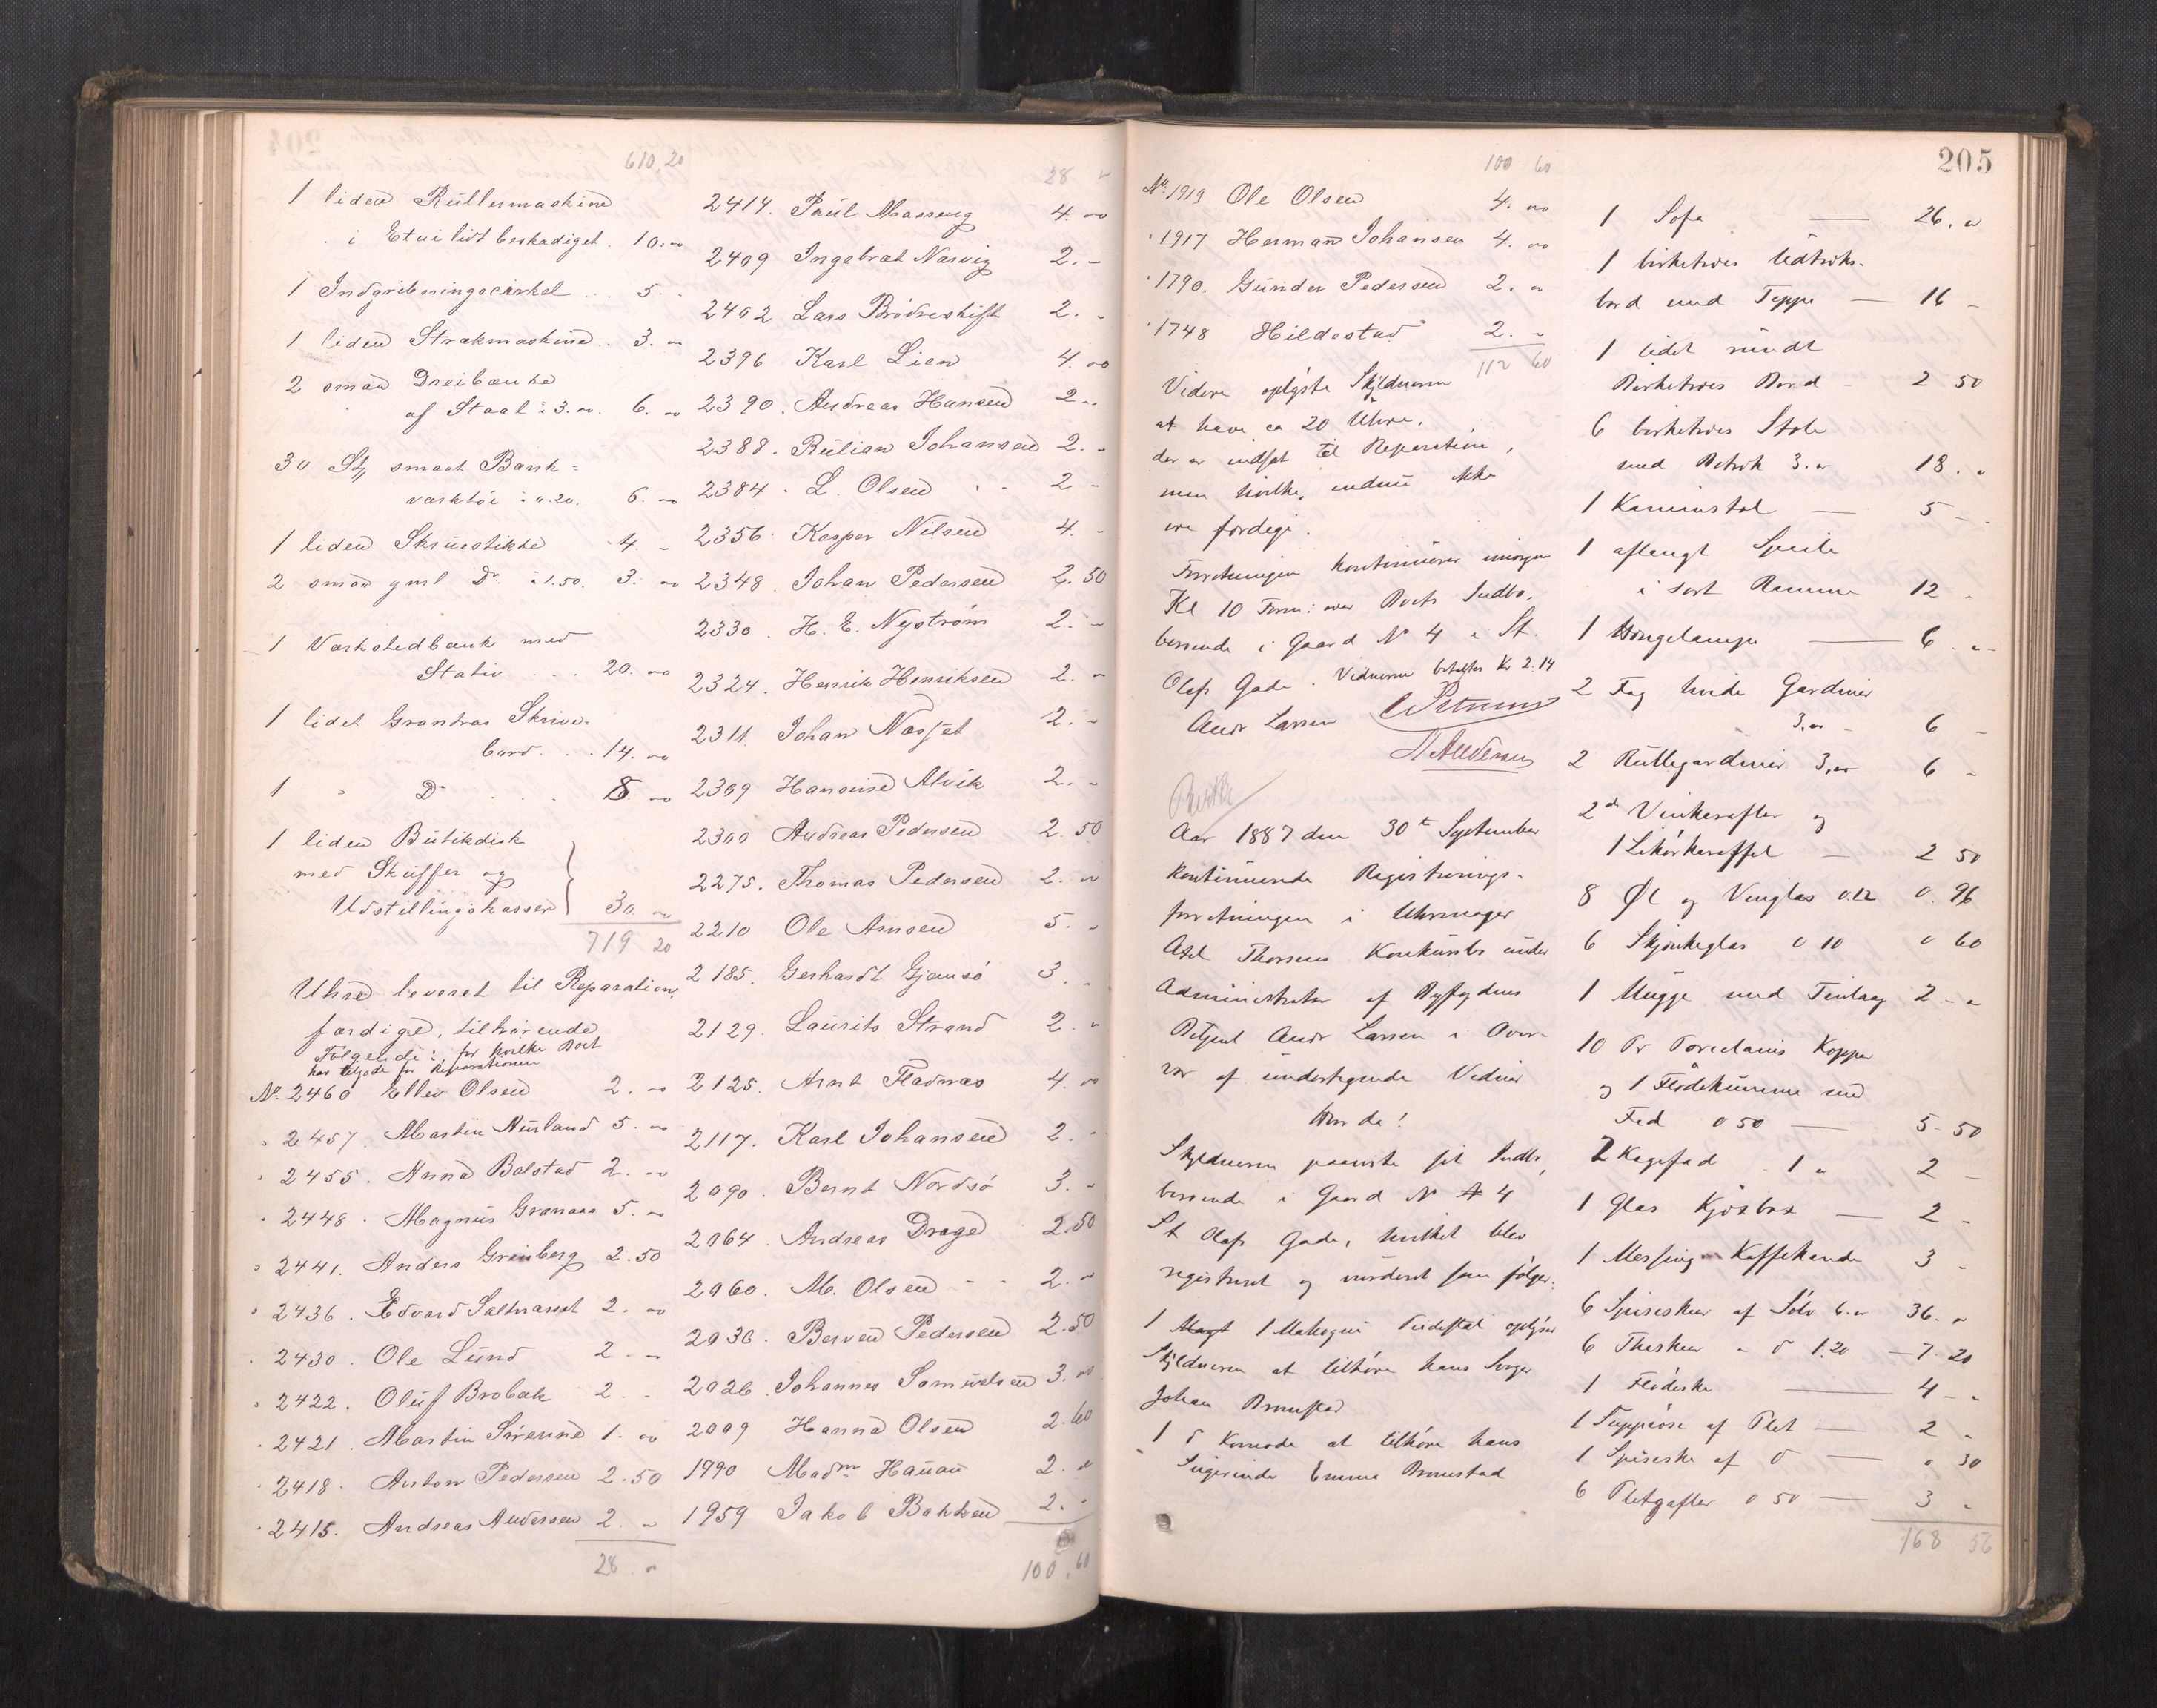 610,20
1 liden Rullermaskine
i Etui lidt beskadiget . 10. „
1 Indgribningscirkel .. 5. „
1 liden Strækmaskine . 3. „
2 smaa Dreibænke
af Staal à 3. „ 6. „
30 St smaat Bank=
værktöi à 0.20. 6. „
1 liden Skruestikke 4. „
2 smaa gml Do à 1.50. 3. „
1 Værkstedbænk med
Stativ ... 20. „
1 lidet Grantræs Skrive-
bord ... 14. „
1 " Do ... 8. „
1 liden Butikdisk
med Skuffer og
Udstillingskasser 30. „
719 20
Uhre leveret til Reparation,
færdige, tilhörende
Fölgende:, for hvilke Boet
har tilgode for Reparationen
No. 2460 Ellev Olsen 2. „
" 2457. Martin Aurland 5. „
" 2455. Anna Balstad 2. „
" 2448. Magnus Grønaas 5. „
" 2441. Anders Grinberg 2.50
" 2436. Edvard Saltnæsset 2. „
" 2430. Ole Lund 2. „
" 2422. Oluf Brobak 2. „
" 2421. Martin Sörenne 1. „
" 2418. Anton Pedersen 2.50
" 2415. Andreas Andersen 2. „
28. „
28 „
2414. Paul Masseng 4. „
2409 Ingebrat Narvig 2. „
2402 Lars Brödreskift 2. „
2396 Karl Lien 4. „
2390. Andreas Hansen 2. „
2388. Rulian Johansen 2. „
2384. L. Olsen 2 „
2356. Kasper Nilsen 4. „
2348. Johan Pedersen 2.50
2330. H. E. Nyström 2. „
2324. Henrik Henriksen 2. „
2311. Johan Næsset 2. „
2309 Hansine Alvik 2. „
2300 Andreas Pedersen 2.50
2275. Thomas Pedersen 2. „
2210 Ole Arnsen 5. „
2185. Gerhardt Gjemsö 3. „
2129. Laurits Strand 2. „
2125. Arnt Fladnæs 4. „
2117. Karl Johansen 2. „
2090. Bernt Nordsö 3. „
2064. Andreas Drage 2.50
2060. M. Olsen 2. „
2036. Berven Pedersen 2.50
2026. Johannes Samuelsen 3. „
2009 Hanna Olsen 2.60
1990 Madm Hauan 2. „
1959 Jakob Bakken 2. „
100.60
100 60
No. 1919 Ole Olsen 4. „
" 1917 Herman Johansen 4. „
" 1790. Gunder Pedersen 2. „
" 1748 Hildestad 2. „
112 60
Videre oplyste Skyldneren
at have ca 20 Uhre,
der er indsat til Reparation,
men hvilke, endnu ikke
ere færdige.
Forretningen kontinueres imorgen
Kl 10 Form: over Boets Indbo,
beroende i Gaard No 4 i St.
Olafs Gade. Vidnerne betaltes Kr 2.14
Andr Larsen
Aar 1887 den 30te September
kontinuerede Registrerings-
forretningen i Uhrmager
Axel Thorsens Konkursbo under
Administration af Byfogdens
Betjent Andr Larsen i Over-
vær af undertegnede Vidner
Hvorda!
Skyldneren paaviste sit Indbo,
beroende i Gaard No 4
St Olafs Gade, hvilket blev
registreret og vurderet som følger:
1 Magt 1 Mahogni Pidestal oplyser
Skyldneren at tilhöre hans Svoger
Johan Bromstad
1 do Komode at tilhöre hans
Svigerinde Emma Bromstad
205
1 Sofa — 26. „
1 birketræs Udtræks-
bord med Teppe — 16 „
1 lidet rundt
Birketræs Bord 2 50
6 birketræs Stole
med Betræk 3. „ 18. „
1 Kaminstol — 5 „
1 aflangt Speile
i sort Ramme 12 „
1 Hængelampe — 6 „
2 Fag hvide Gardiner
3. „ 6 „
2 Rullegardiner 3, „ 6 „
2 do Vinkarafler og
1 Likørkaraffel — 2 50
8 Øl og Vinglas 0.12 0.96
6 Skjænkeglas 0 10 0 60
1 Mugge med Tinlaag 2 „
10 Pr Porcelains Kopper
og 1 Flødekumme med
Fad 0 50 — 5 50
2 Kagefad 1 „ 2 „
1 Glas Kjøxbox — 2 „
1 Messing Kaffekande 3 „
6 Spiseskeer af Sölv 6. „ 36. „
6 Theskeer " do 1.20 — 7 20
1 Flödeske — 4 „
1 Suppeöse af Plet — 2 „
1 Spiseske af do — 0 30
6 Pletgafler 0 50 — 3 „
168 56